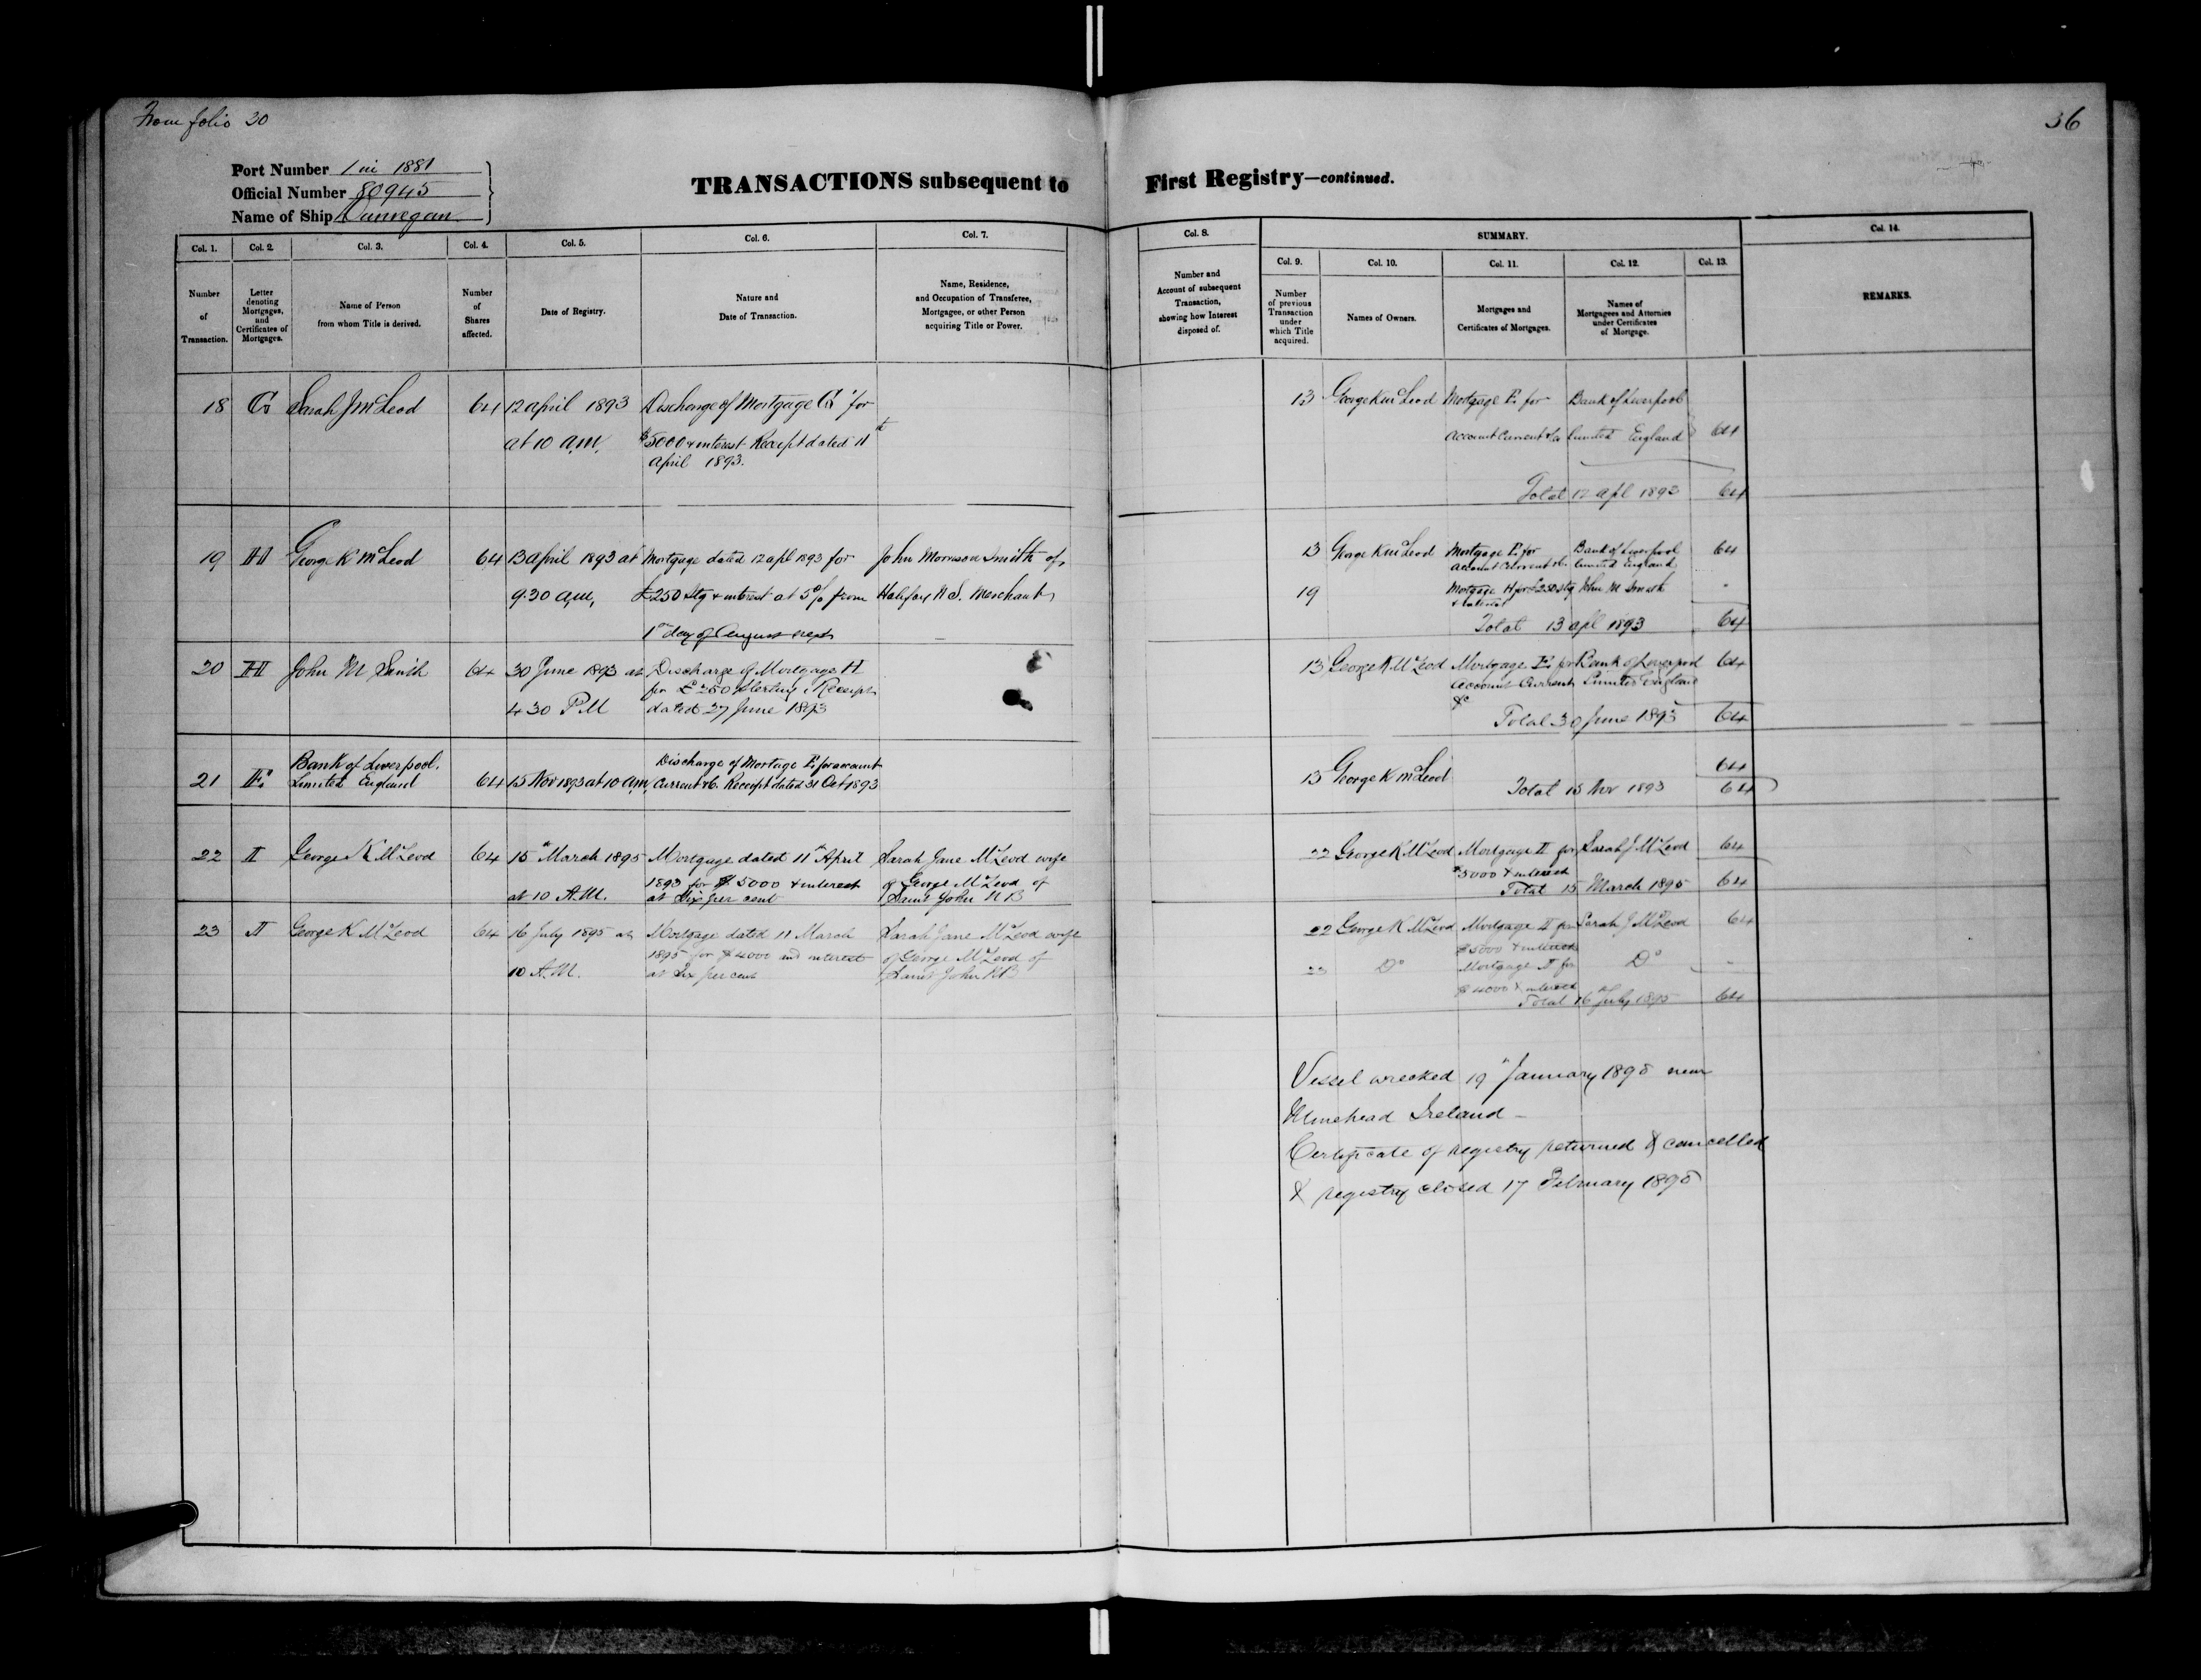 From folio 30
36
Port Number 1 in 1881
Official Number 80945
Name of Ship Dunvegan
TRANSACTIONS subsequent to First Registry—continued.
Col. 1. Col. 2. Col. 3. Col. 4. Col. 5. Col. 6. Col. 7.
Number of Transaction.
Letter denoting Mortgages, and Certificates of Mortgages.
Name of Person from whom Title is derived.
Number of Shares affected.
Date of Registry.
Nature and Date of Transaction.
Name, Residence, and Occupation of Transferee, Mortgagee, or other Person acquiring Title or Power.
18 G Sarah J McLeod 64 12 april 1893 Discharge of Mortgage G for
at 10 a.m. $5000 & interest Receipt dated 11th
april 1893.
19 H George K McLeod 64 13 april 1893 at Mortgage dated 12 apl 1893 for John Morrison Smith of
9.30 a.m. £250 Stg & interest at 5% from Halifax N.S. Merchant
1st day of August next
20 H John M Smith 64 30 June 1893 at Discharge of Mortgage H
for £250 Sterling, Receipt
4 30 P.M dated 27 June 1893
Bank of Liverpool. Discharge of Mortage E. for account
21 E. Limited England 64 15 Nov 1893 at 10 a.m, Current &c. Receipt dated 31 Oct 1893
22 I George K McLeod 64 15th March 1895 Mortgage dated 11th April Sarah Jane McLeod wife
1893 for $5000 & interest of George McLeod of
at 10 A.M. at Six per cent Saint John N B
23 J George K McLeod 64 16 July 1895 at Mortgage dated 11 March Sarah Jane McLeod wife
1895 for $4000 and interest of George McLeod of
10 A.M. at Six per cent Saint John N B
Col. 8. SUMMARY. Col. 14.
Col. 9. Col. 10. Col. 11. Col. 12. Col. 13.
Number and Account of subsequent Transaction, showing how Interest disposed of.
Number of previous Transaction under which Title acquired.
Names of Owners.
Mortgages and Certificates of Mortgages.
Names of Mortgagees and Attornies under Certificates of Mortgage.
REMARKS.
13 George K McLeod Mortgage E. for Bank of Liverpool
account Current &c Limited England 64
Total 12 apl 1893 64
13 George K McLeod Mortgage E. for Bank of Liverpool 64
account Current &c. Limited England
19 Mortgage H for £250 Stg John M Smith "
& interest
Total 13 apl 1893 64
13 George K McLeod Mortgage E. for Bank of Liverpool 64
Account Current Limited England
&c
Total 30 June 1893 64
64
13 George K McLeod
Total 15 Nov 1893 64
22 George K McLeod Mortgage I for Sarah J McLeod 64
$5000 & interest
Total 15 March 1895 64
22 George K McLeod Mortgage I for Sarah J McLeod 64
$5000 & interest
23 Do Mortgage J for Do "
$4000 & interest
Total 16th July 1895 64
Vessel wrecked 19th January 1898 near
Minehead Ireland —
Certificate of registry returned & cancelled
& registry closed 17 February 1898